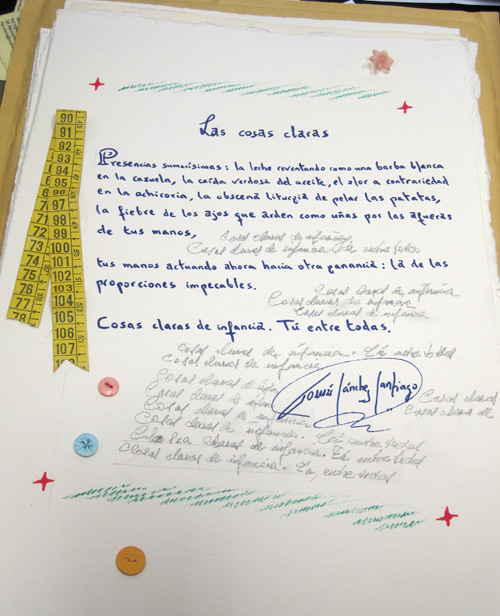 Las cosas claras
Presencias sumarísimas: la leche reventando como una barba blanca
en la cazuela, la cuerda verdosa del aceite, el olor a contrariedad
en la achicoria, la obscena liturgia de pelar las patatas,
la fiebre de los ajos que arden como uñas por las afueras
de tus manos,
Cosas claras de infancia
Cosas claras de infancia. Tú entre todas
tus manos actuando ahora hacia otra ganancia: la de las
Cosas claras de infancia
proporciones impecables.
Cosas claras de infancia
Cosas claras de infancia
Cosas claras de infancia. Tú entre todas.
Cosas claras de infancia. Tú entre todas
Cosas claras de infancia
Cosas claras de
Cosas claras de
Tomás Sánchez Santiago
Cosas claras
Cosas claras de
Cosas claras de infancia
Cosas claras de infancia. Tú entre todas
Cosas claras de infancia. Tú entre todas
Cosas claras de infancia. Tú, entre todas
90
91
92
93
94
95
96
97
98
99
100
101
102
103
104
105
106
107
71
72
73
74
75
76
77
78